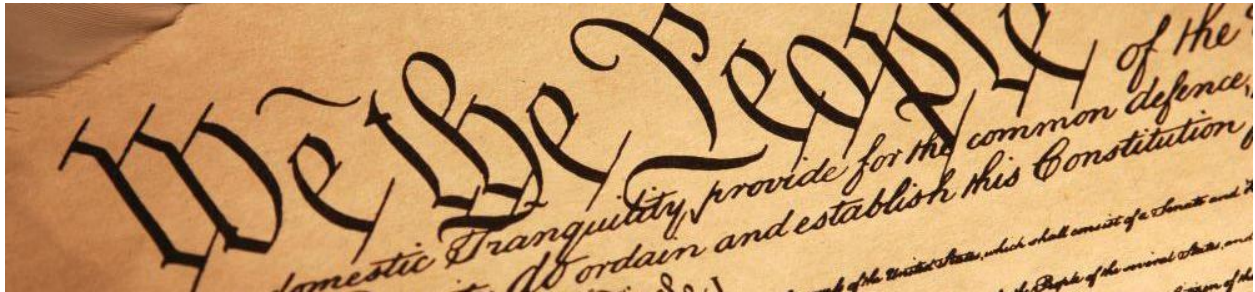 We the People of the
domestic Tranquility, provide for the common defence,
do ordain and establish this Constitution
of the United States, which shall consist of a Senate and
People of the several States, and
Citizen of the